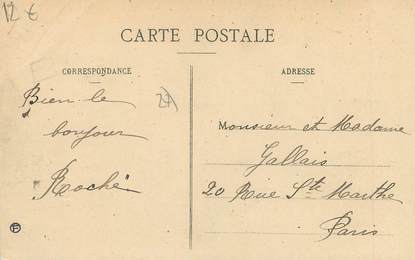 12 €
CARTE POSTALE
CORRESPONDANCE
ADRESSE
Bien le
bonjour
Roché
Monsieur et Madame
Gallais
20 Rue Ste Marthe
Paris